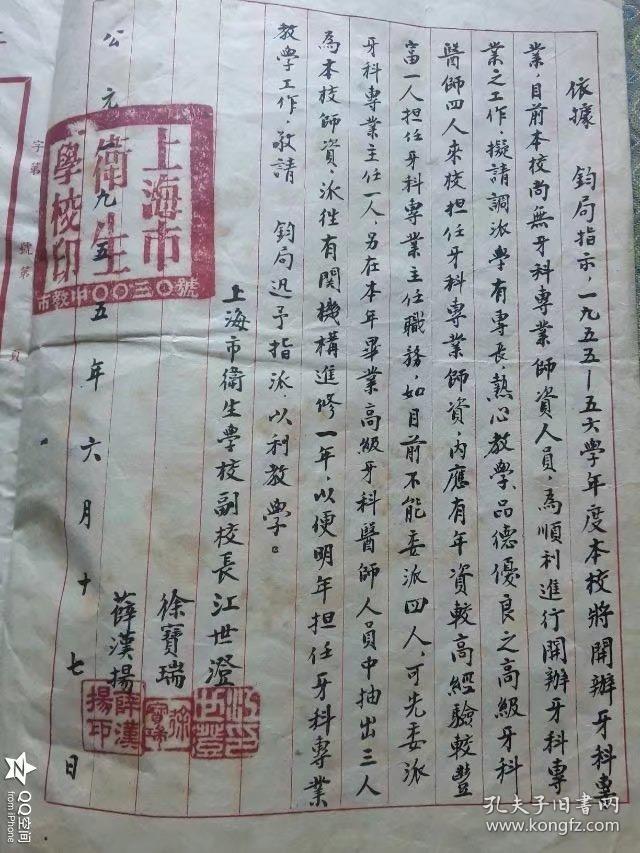 依據　鈞局指示，一九五五—五六學年度本校將開辦牙科專
業，目前本校尚無牙科專業師資人員，為順利進行開辦牙科專
業之工作，擬請調派學有專長，熱心教學，品德優良之高級牙科
醫師四人來校担任牙科專業師資，内應有年資較高經驗較豐
富一人担任牙科專業主任職務，如目前不能委派四人，可先委派
牙科專業主任一人，另在本年畢業高級牙科醫師人員中抽出三人
為本校師資，派往有関機構進修一年，以便明年担任牙科專業
教學工作，敬請　鈞局迅予指派，以利教學。
上海市衛生學校副校長江世澄
徐寶瑞
薛漢揚
公元一九五五年六月十七日
上海市
衛生
學校印
市教中〇〇三〇號
徐寶瑞
薛漢揚印
字第　號第　頁
QQ空间
from iPhone
孔夫子旧书网
www.kongfz.com